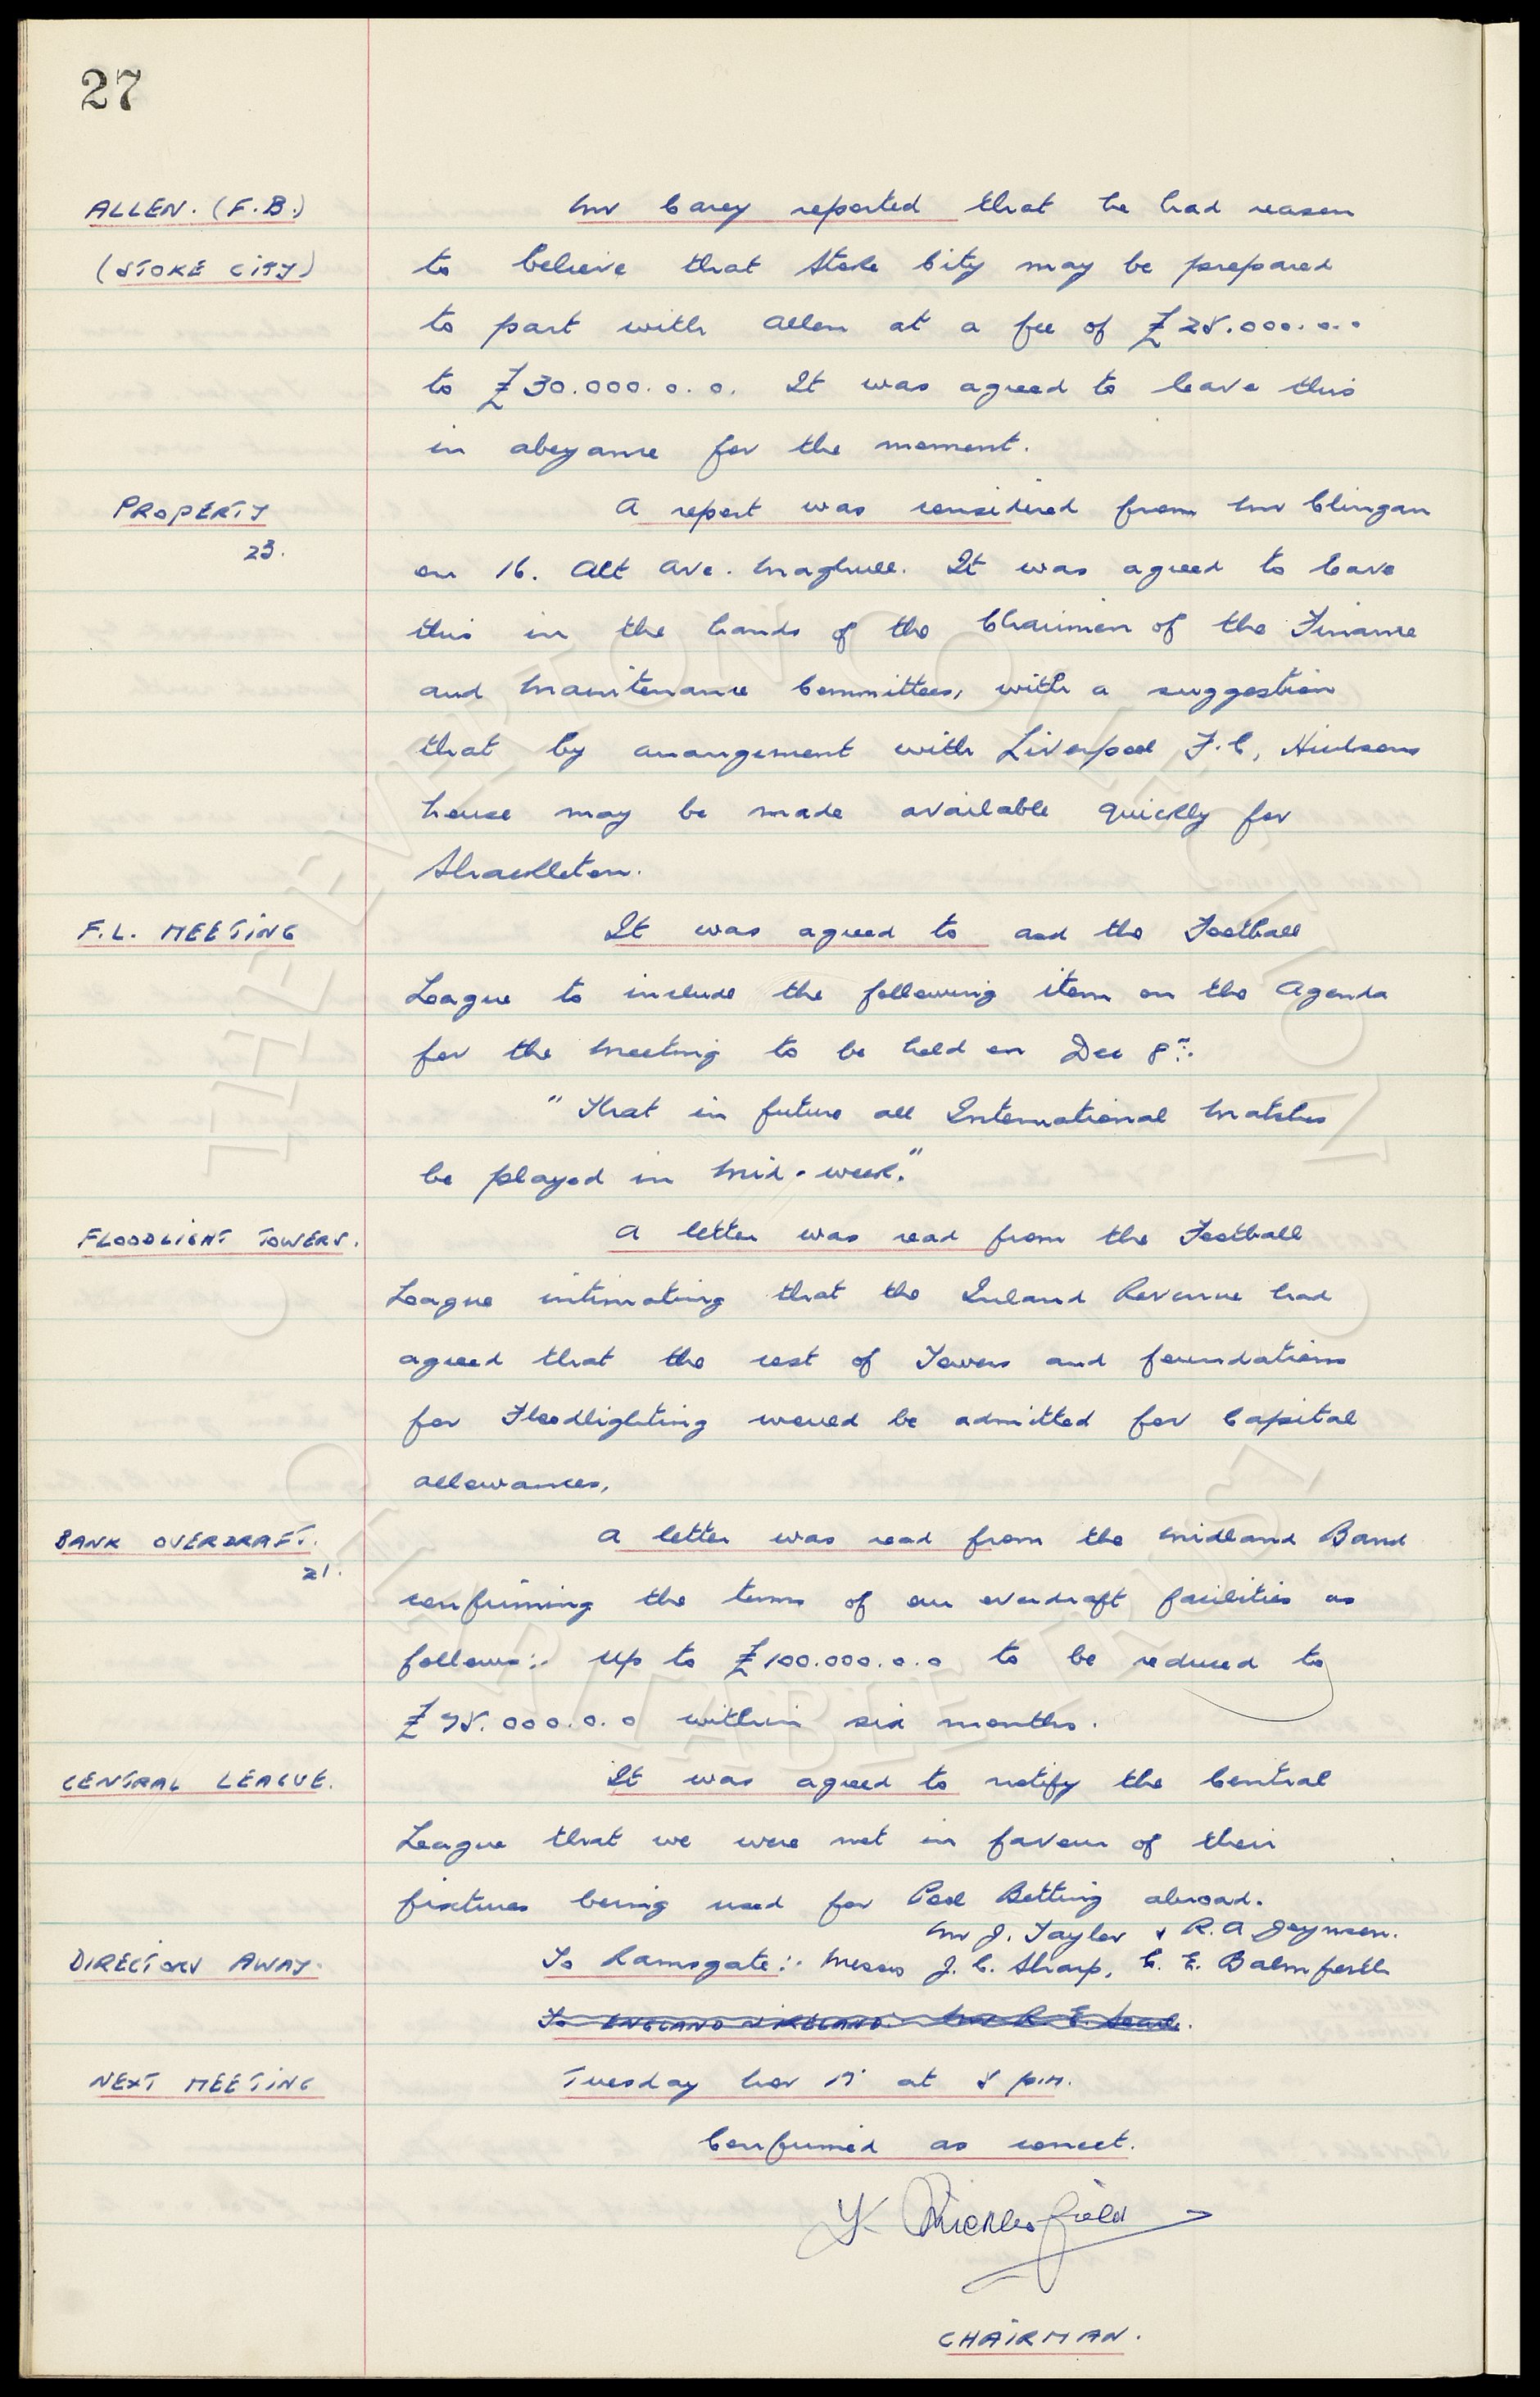 27
ALLEN. (F.B.)
(STOKE CITY)
Mr Carey reported that he had reason
to believe that Stoke City may be prepared
to part with Allen at a fee of £25.000.0.0
to £30.000.0.0. It was agreed to leave this
in abeyance for the moment.
PROPERTY
23.
A report was considered from Mr Clingan
on 16. Alt Ave. Maghull. It was agreed to leave
this in the hands of the Chairmen of the Finance
and Maintenance Committees, with a suggestion
that by arrangement with Liverpool F.C, Hickson's
house may be made available quickly for
Shackleton.
F.L. MEETING
It was agreed to ask the Football
League to include the following item on the Agenda
for the Meeting to be held on Dec 8th:
"That in future all International Matches
be played in Mid-week."
FLOODLIGHT TOWERS.
A letter was read from the Football
League intimating that the Inland Revenue had
agreed that the cost of Towers and foundations
for Floodlighting would be admitted for Capital
allowances.
BANK OVERDRAFT.
21.
A letter was read from the Midland Band
confirming the terms of our overdraft facilities as
follows:- Up to £100.000.0.0 to be reduced to
£75.000.0.0 within six months.
CENTRAL LEAGUE.
It was agreed to notify the Central
League that we were not in favour of their
fixtures being used for Pool Betting abroad.
Mr J. Taylor & R.A Joynson.
DIRECTORS AWAY.
To Ramsgate:- Messrs J.C. Sharp, C.E. Balmforth
To ENGLAND v IRELAND. Mr R.E. Searle.
NEXT MEETING
Tuesday Nov 17 at 5 p.m.
Confirmed as correct.
CHAIRMAN.
THE EVERTON COLLECTION